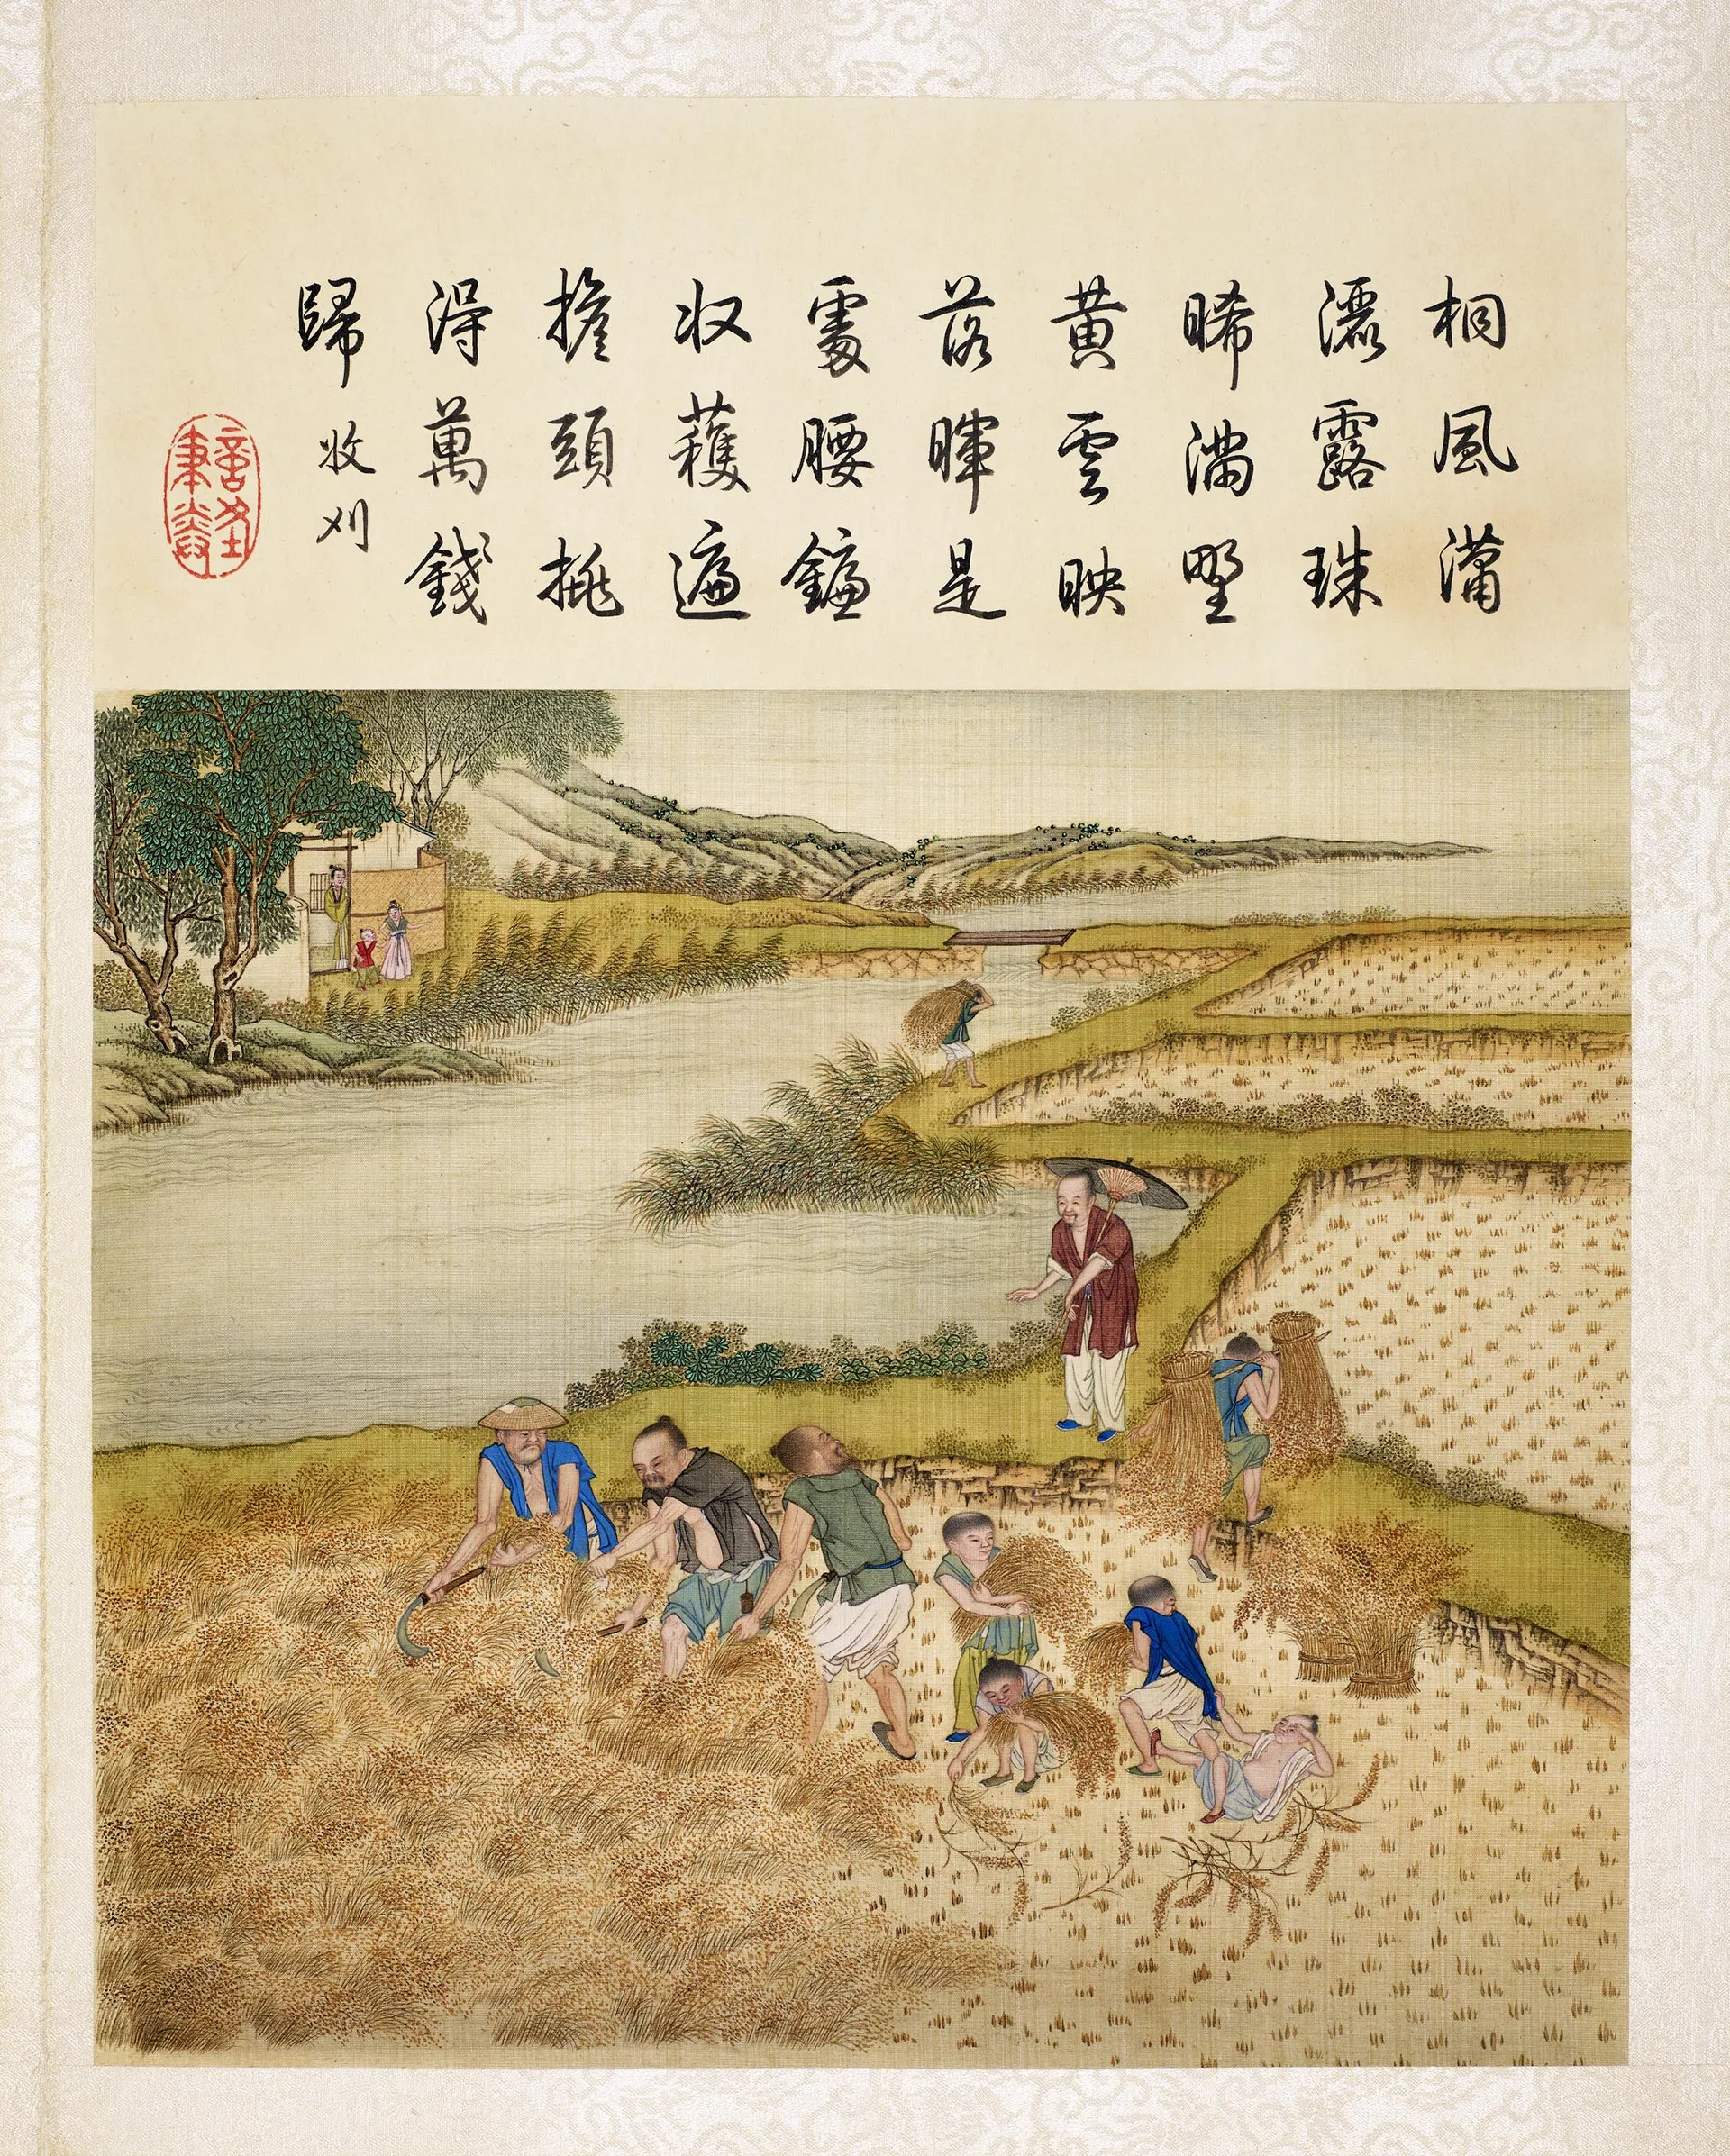 桐風瀟
灑露珠
晞滿墅
黃雲映
落暉是
處腰鐮
收穫遍
擔頭挑
得萬錢
歸
收刈